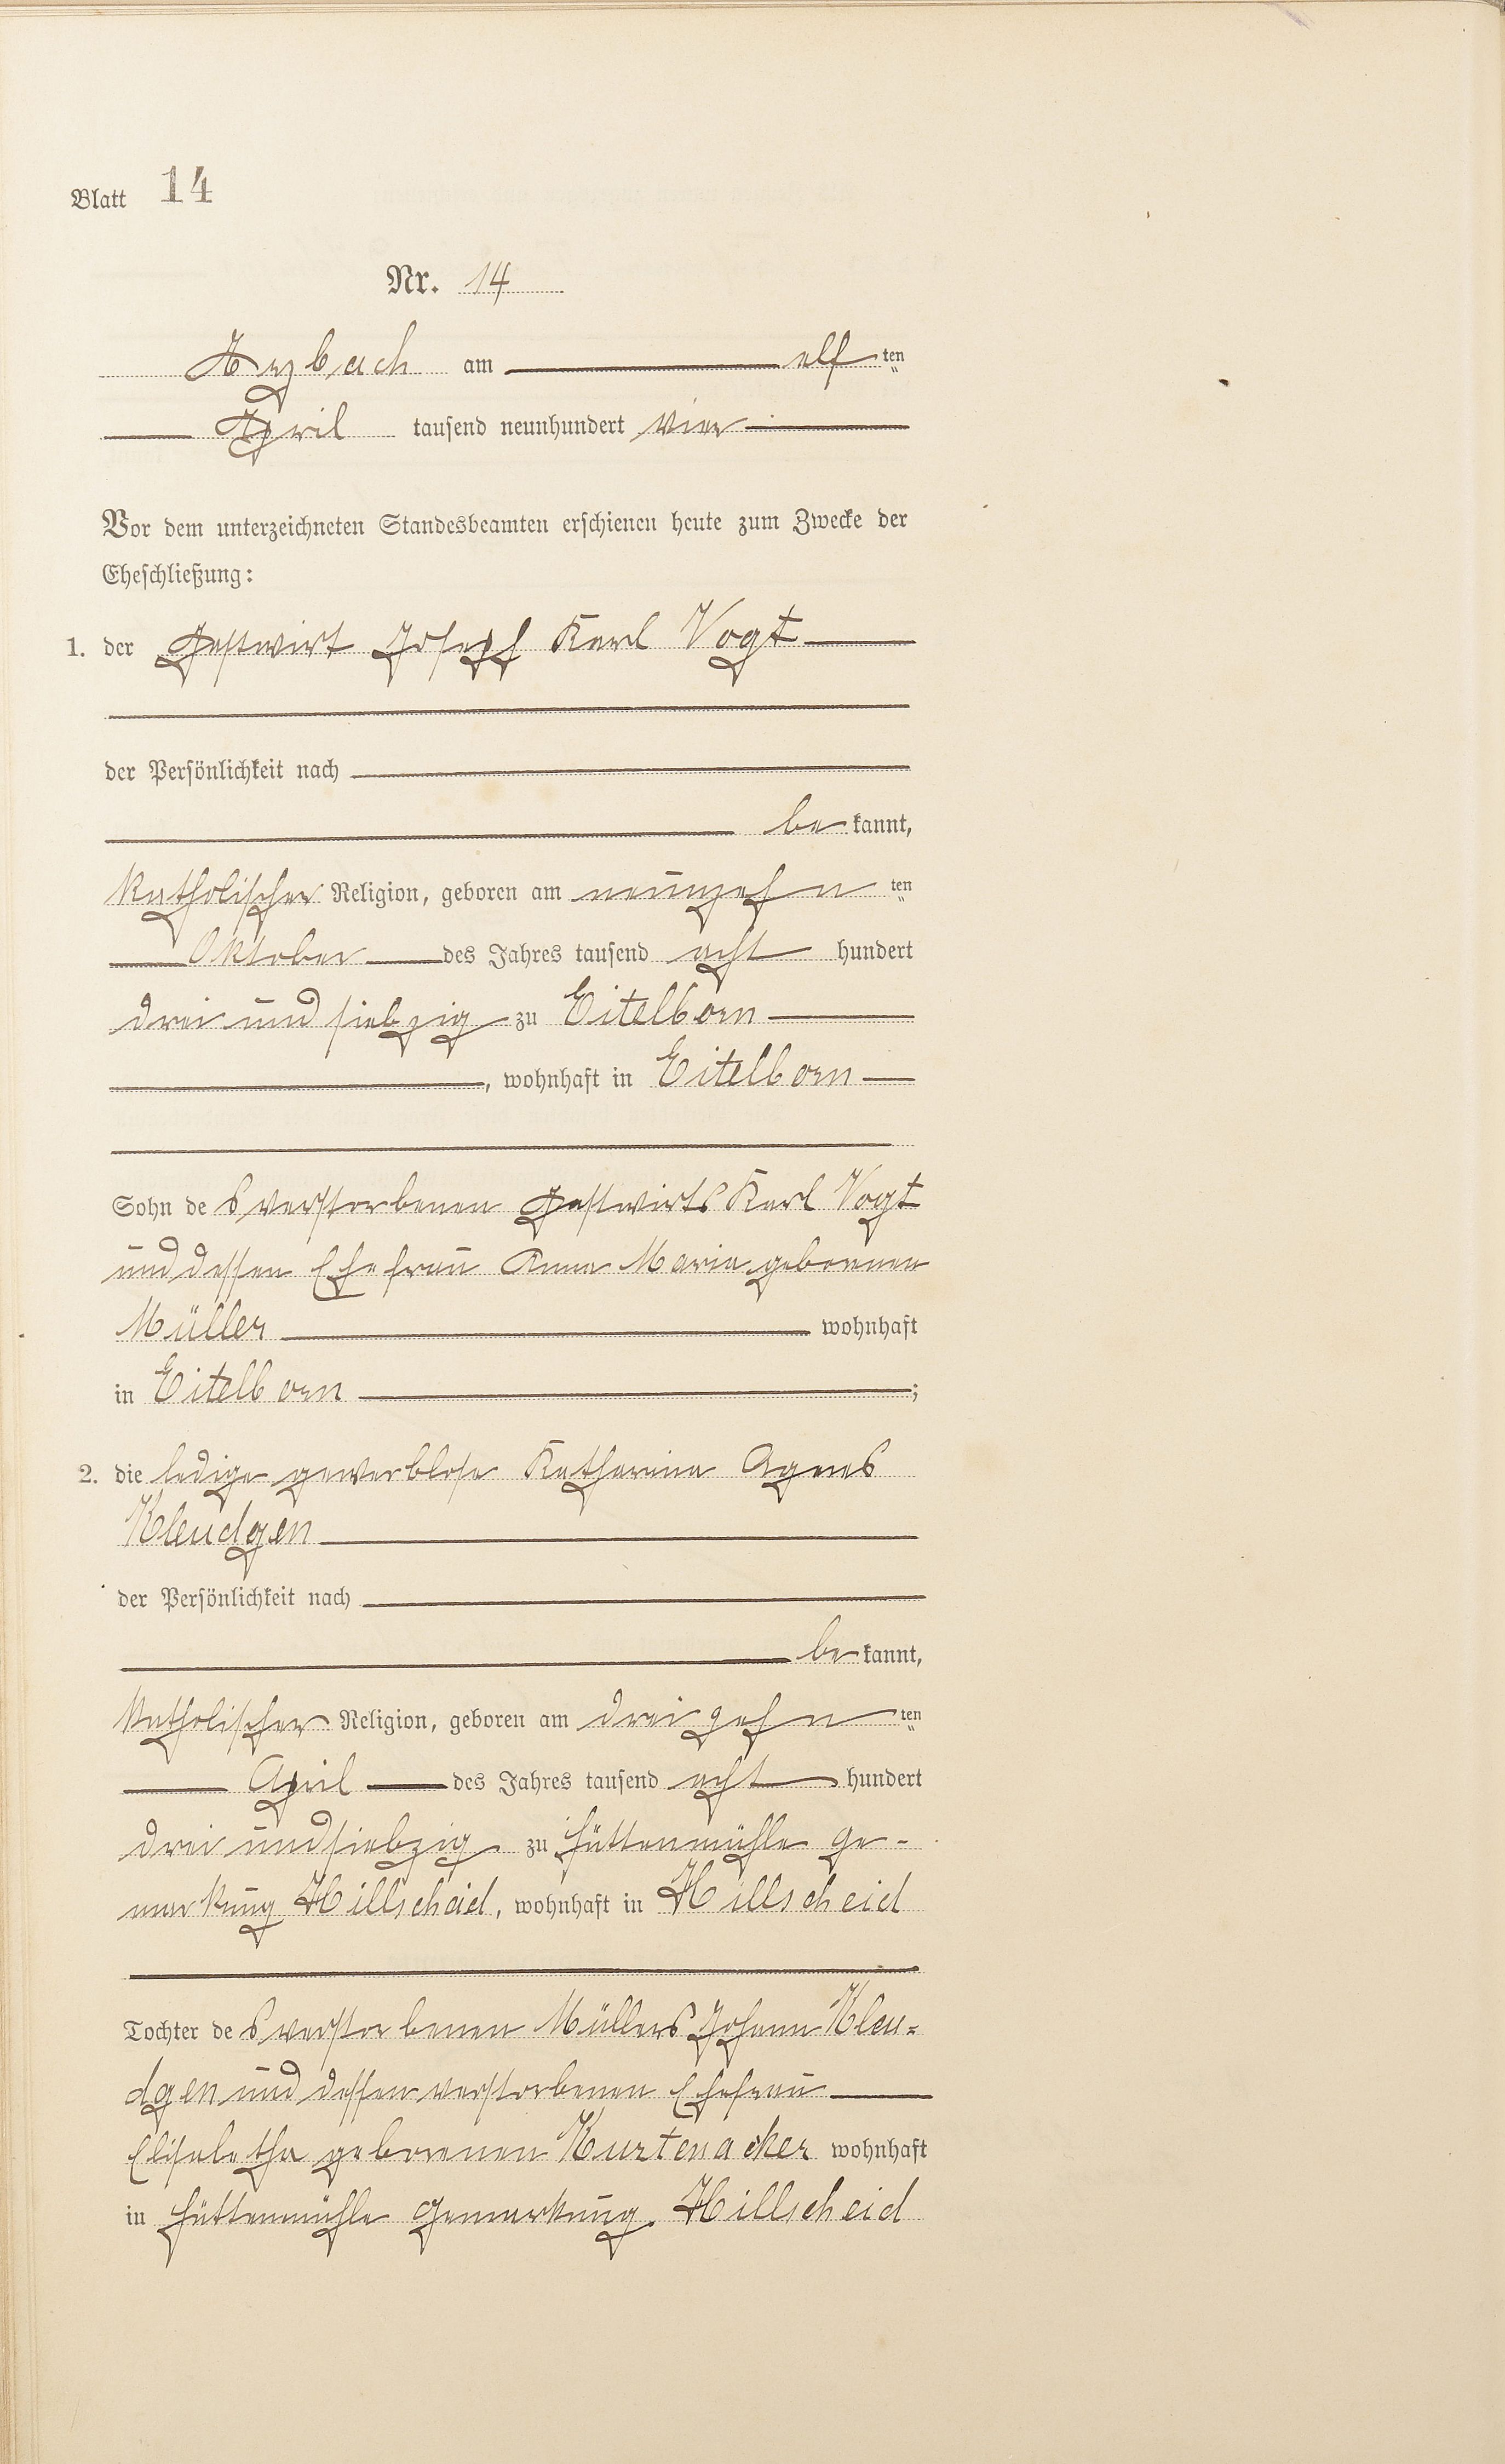 Blatt 14
Nr. 14
Arzbach am elf ten
April tausend neunhundert vier
Vor dem unterzeichneten Standesbeamten erschienen heute zum Zwecke der
Eheschließung:
1. der Gastwirt Joseph Karl Vogt
der Persönlichkeit nach
be kannt,
katholischer Religion, geboren am neunzehn ten
Oktober des Jahres tausend acht hundert
drei und siebzig zu Eitelborn
, wohnhaft in Eitelborn
Sohn de s verstorbenen Gastwirts Karl Vogt
und dessen Ehefrau Anna Maria geborenen
Müller wohnhaft
in Eitelborn ;
2. die ledige gewerblose Katharina Agnes
Kleudgen
der Persönlichkeit nach
be kannt,
katholischer Religion, geboren am dreizehn ten
April des Jahres tausend acht hundert
drei und siebzig zu Hüttenmühle Ge-
markung Hillscheid, wohnhaft in Hillscheid
Tochter de s verstorbenen Müllers Johann Kleu=
dgen und dessen verstorbenen Ehefrau
Elisabetha geborenen Kurtenacker wohnhaft
in Hüttenmühle Gemarkung Hillscheid